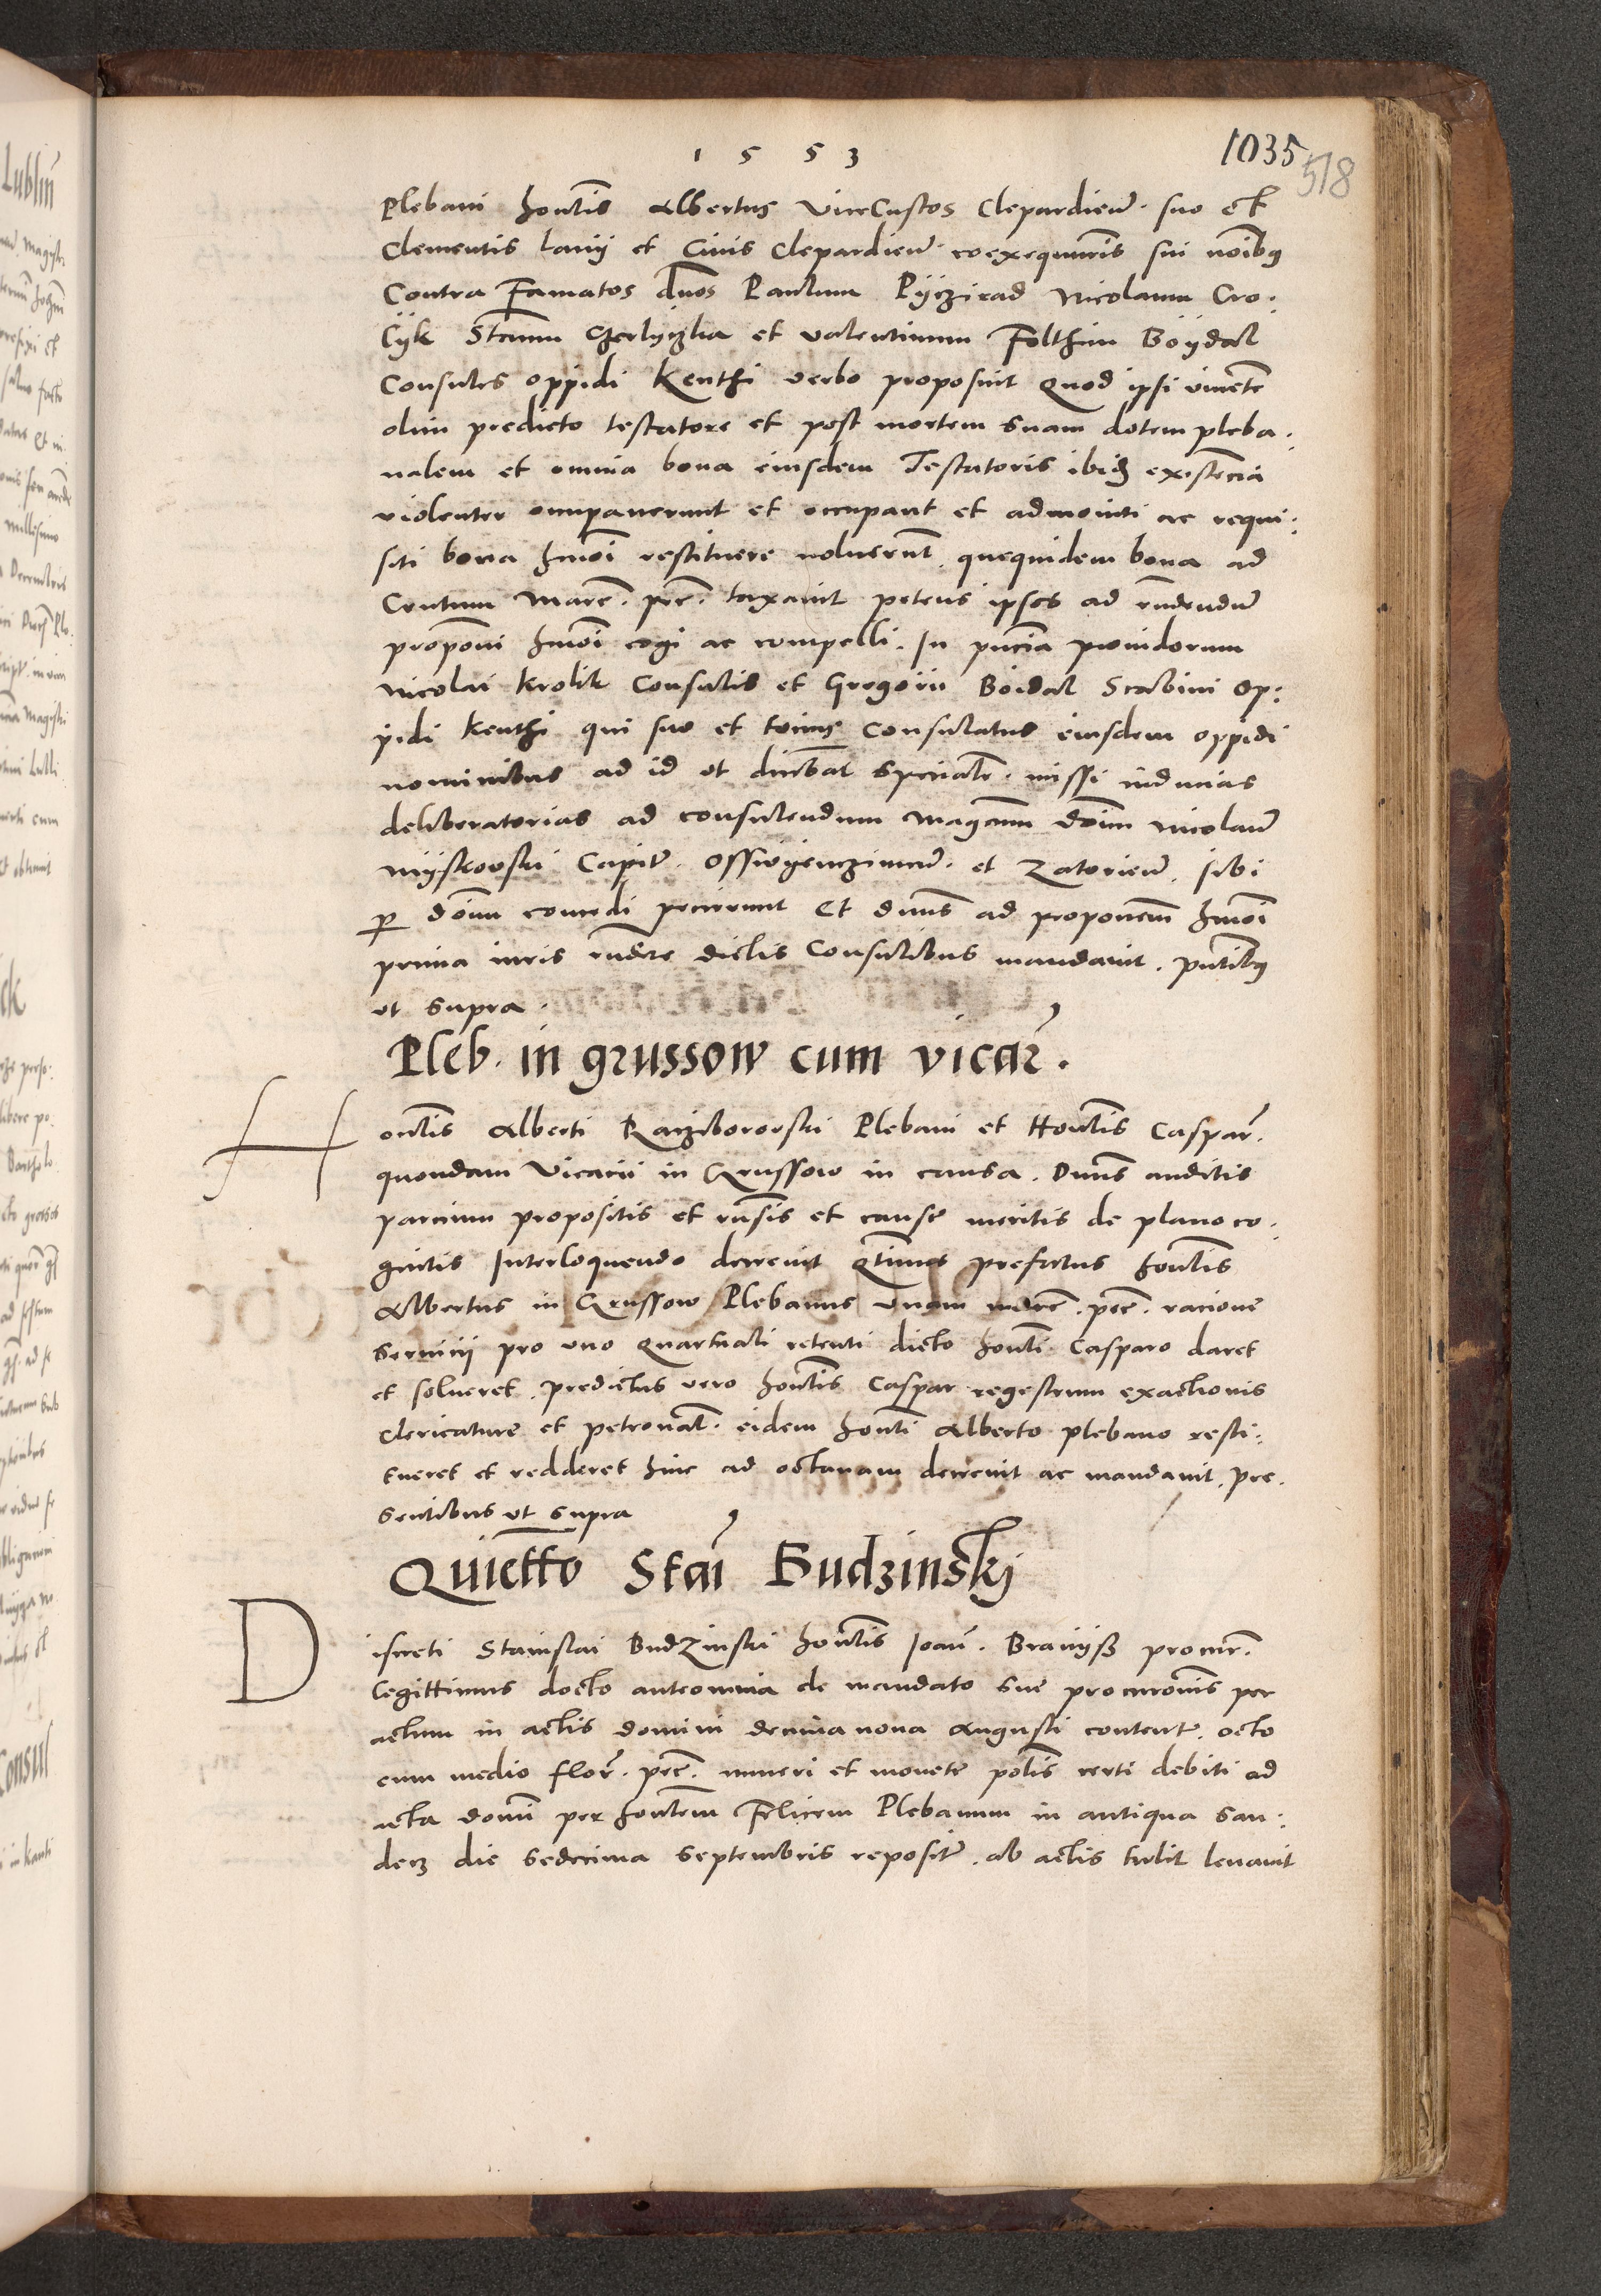 1 5 5 3
1035
518
Plebani hon͂tis Albertus ViceCustos Clepardien͂. suo et
Clementis lanij et Civis Clepardien͂. coexequutoris sui noi͂bus
Contra Famatos dn͂os Paulum Pÿczirad Nicolaum Cro.
cÿk Stan͂um et Valentinum Folthin Böydal
Consules oppidi Kenthi verbo proposuit Quod ipsi viuen͂te
olim predicto testatore et post mortem suam dotem pleba.
nalem et omnia bona eiusdem Testatoris ibid existen͂cia
violenter occupauerunt et occupant et admoniti ac requi:
siti bona hmo͂i restituere noluerun͂t. quequidem bona ad
Centum Marc͂. pec͂. taxauit petens ipsos ad rn͂dendu͂
propo͂ni hmo͂i cogi ac compelli. In pn͂cia prouidorum
Nicolai Krolik Consulis et Gregorii Boidal Scabini Op:
pidi Kenthi qui suo et tocius Consulatus eiusdem oppidi
nominibus ad id ut diceba͂t specialr͂. missi inducias
deliberatorias ad consulendum Magcu͂m do͂im Nicolau͂
Mÿskovski Capit͂. Osswijenczimen͂. et Zatorien͂. sibi
p do͂im concedi pecierunt Et dn͂us ad proponem͂ hmo͂i
prima iuris rn͂dere dictis Consulibus mandauit. pn͂tibus
ut supra.
Pleb. in grussow cum vicar͂.
H on͂tis Alberti Racziborovski Plebani et Hon͂tis Caspar͂.
quondam Vicarii in Grussow in causa. Dn͂us auditis
parcium propositis et rn͂sis et cause meritis de plano co.
gnitis Interloquendo decreuit q͂tinus prefatus hon͂tis
Albertus in Grussow Plebanus vnam marc͂. pec͂. racione
seruicij pro vno quartuali retenti dicto hon͂ti Casparo daret
et solueret. predictus vero hon͂tis Caspar regestrum exactionis
clericature et petronal͂. eidem hon͂ti Alberto plebano resti:
tueret et redderet hinc ad octauam decreuit ac mandauit. pre.
sentibus ut supra
Quiett͂o Stai͂ Budzinskj
D iscreti Stanislai BudZinski hon͂tis Joan͂. procur͂.
legittimus docto anteomnia de mandato sue procuro͂nis per
actum in actis domini decima nona Augusti content͂. octo
cum medio flor͂. pec͂. numeri et monete pol͂is certi debiti ad
acta do͂ini per hon͂tem Felicem Plebanum in antiqua San:
decz die sedecima Septembris reposit͂. ab actis tulit leuauit